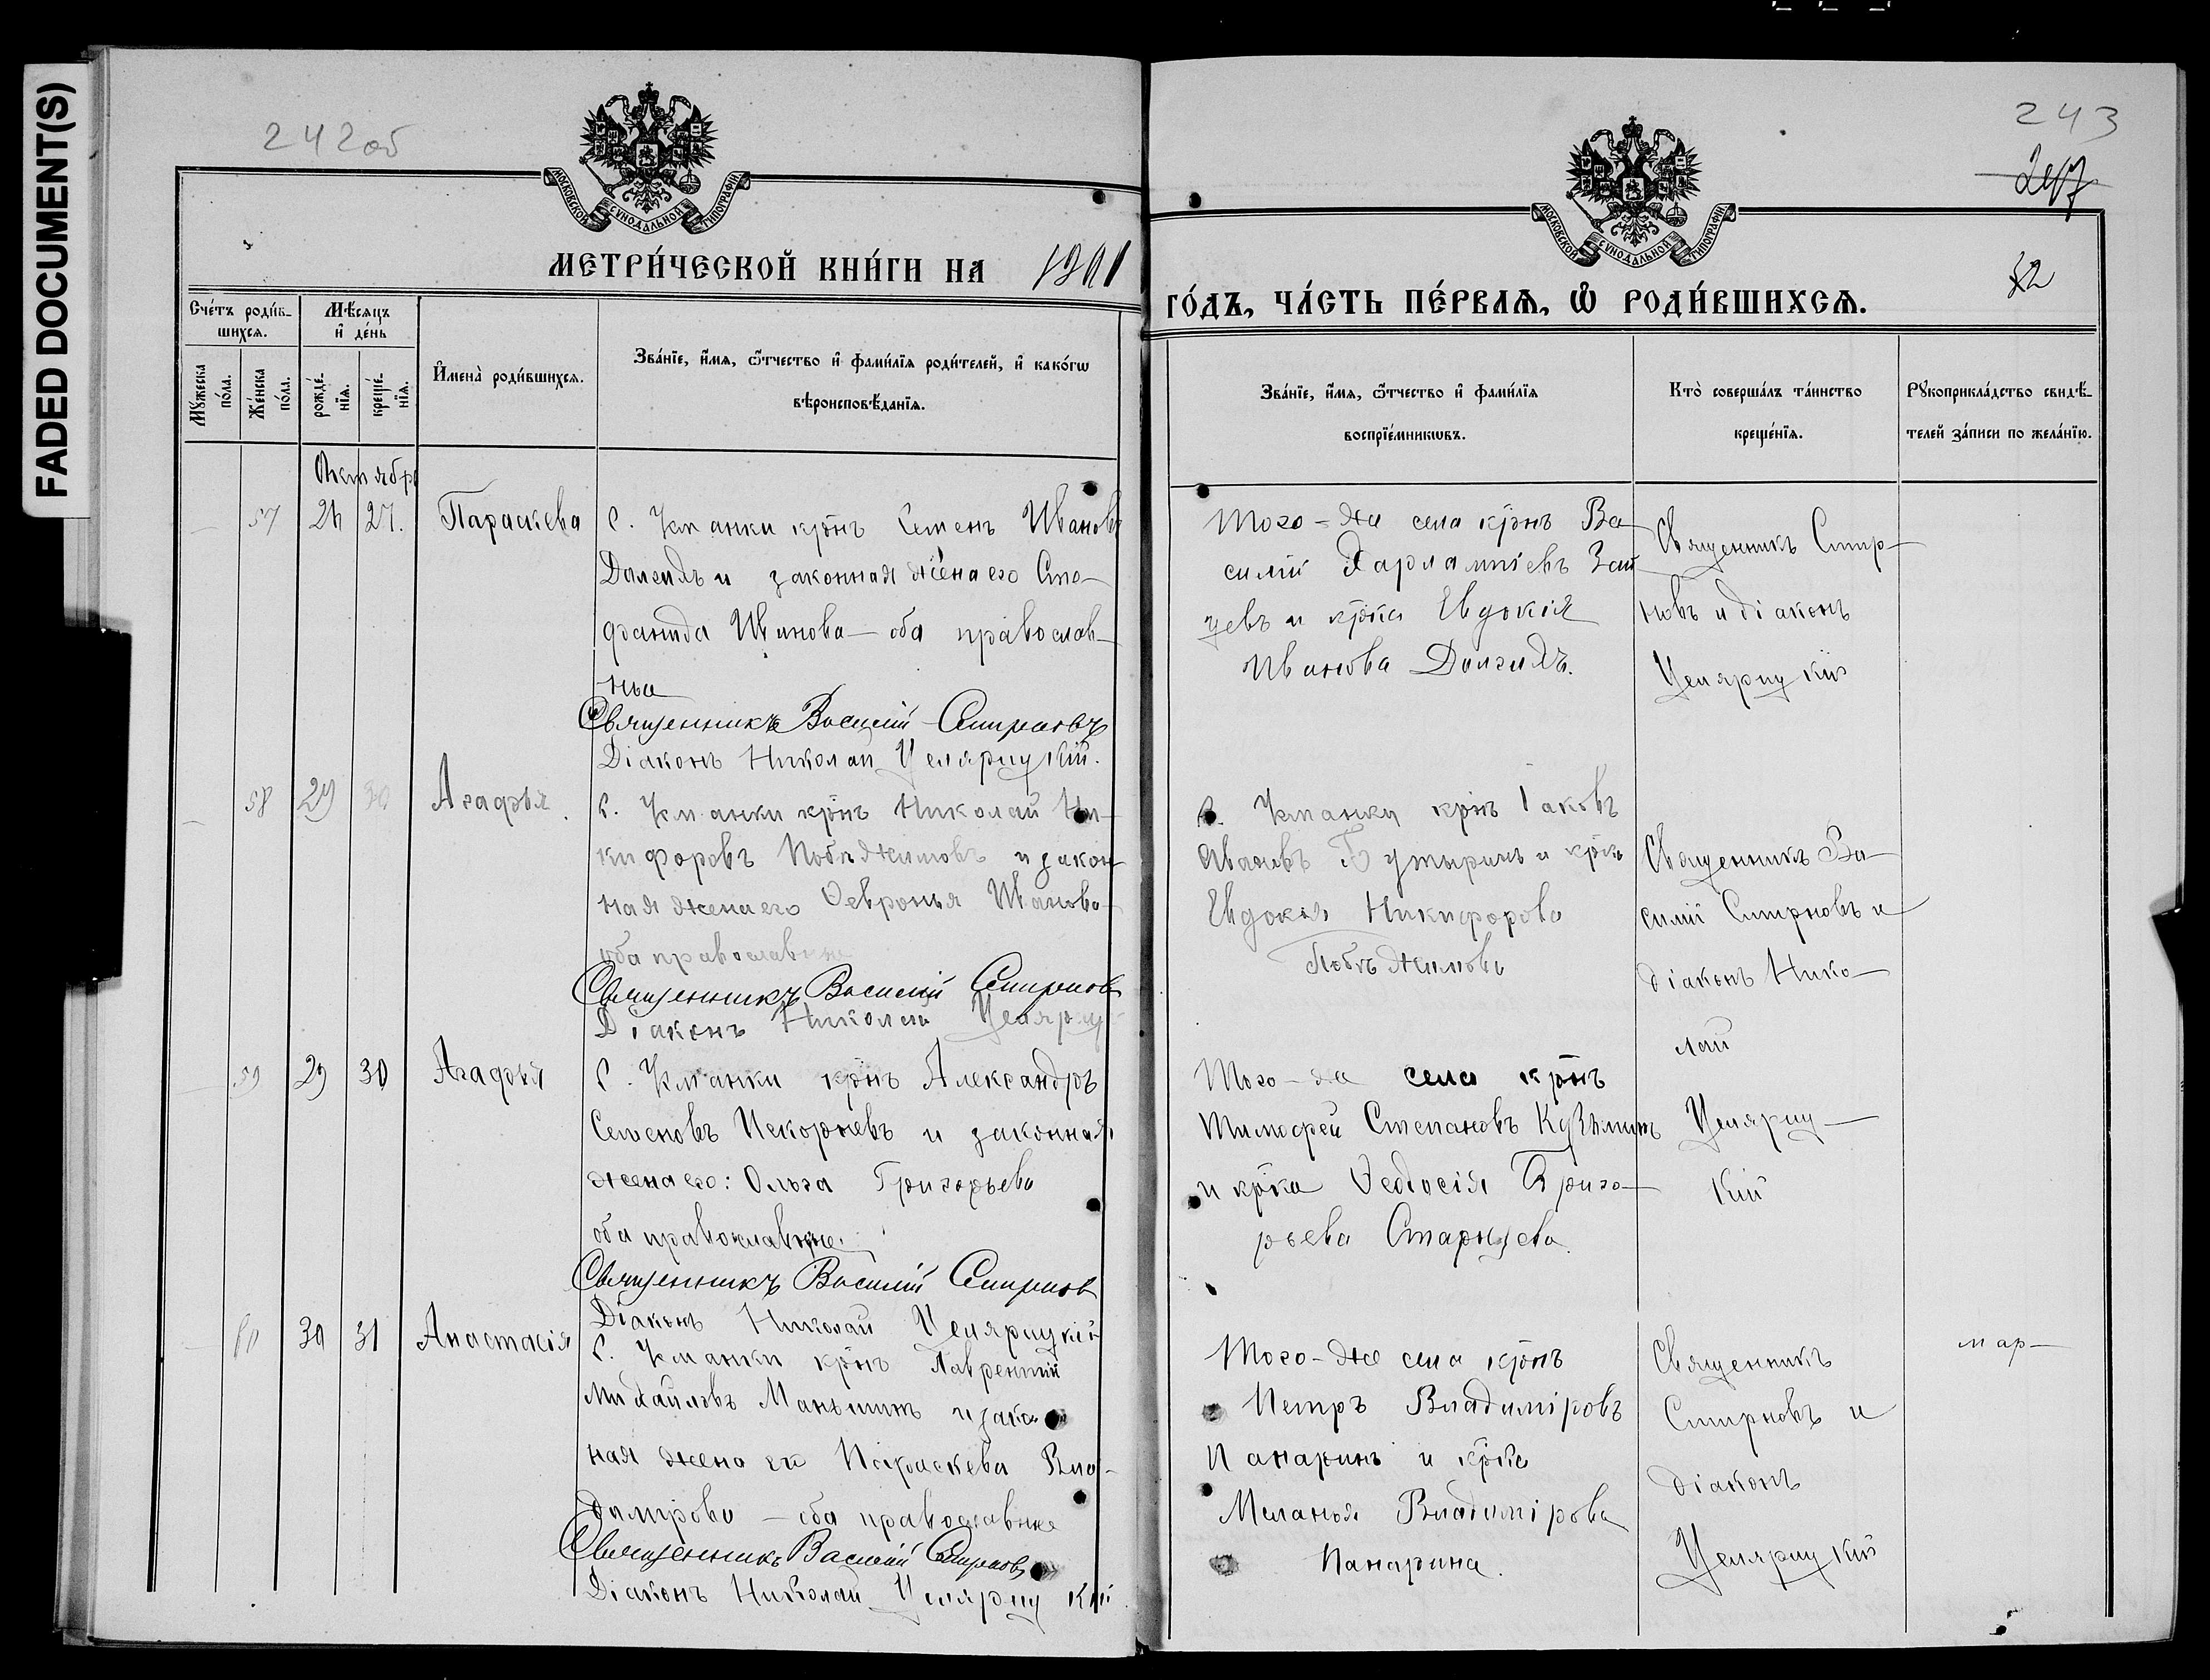 FADED DOCUMENT(S)
242об
МОСКОВСКОЙ СѴНОДАЛЬНОЙ ТИПОГРАФІИ
МЕТРИ́ЧЕСКОЙ КНИ́ГИ НА 1901
Сче́тъ роди́в-
шихсѧ.
Мѣ́сяцъ
и҆ де́нь
Мꙋ́жеска
по́ла.
Же́нска
по́ла.
рожде́-
нїѧ.
креще́-
нїѧ.
И҆мена̀ роди́вшихсѧ.
Зва́нїе, и҆́мѧ, ѻ҆́тчество и҆ фами́лїѧ роди́телей, и҆ како́гѡ
вѣроисповѣ́данїѧ.
Октября
57 26 27. Параскева
С. Уманки крнъ Семенъ Ивановъ
Долгихъ и законная жена его Сте-
фанида Иванова — оба православ-
ные
Священникъ Василій Смирновъ
Діаконъ Николай Целярицкій.
58 29 30 Агафья
С. Уманки крнъ Николай Ни-
кифоровъ Побѣжимовъ и закон
ная жена его Ѳевронья Иванова
оба православные
Священникъ Василій Смирновъ
Діаконъ Николай Целяриц
59 29 30 Агафья
С. Уманки крнъ Александръ
Семеновъ Некорневъ и законная
жена его: Ольга Григорьева
оба православные.
Священникъ Василій Смирнов
Діаконъ Николай Целярицкій
60 30 31 Анастасія
С. Уманки крнъ Лаврентій
Михайловъ Маньшинъ и закон
ная жена его Параскева Вла-
димірова — оба православные
Священникъ Василій Смирновъ
Діаконъ Николай Целярицкій
243
247
МОСКОВСКОЙ СѴНОДАЛЬНОЙ ТИПОГРАФІИ
32
ГО́ДЪ, ЧА́СТЬ ПЕ́РВАѦ, Ѽ РОДИ́ВШИХСѦ.
Зва́нїе, и҆́мѧ, ѻ҆́тчество и҆ фами́лїѧ
воспрїе́мникѡвъ.
Кто̀ соверша́лъ та́инство
креще́нїѧ.
Рꙋкоприкла́дство свидѣ́-
телей за́писи по жела́нїю.
Того-же села крнъ Ва-
силій Харлампіевъ Зай
цевъ и крка Евдокія
Иванова Долгихъ.
Священникъ Смир-
новъ и діаконъ
Целярицкій
С. Уманки крнъ Іаковъ
Ивановъ Бутыринъ и крка
Евдокія Никифорова
Побѣжимова
Священникъ Ва-
силій Смирновъ и
діаконъ Нико-
лай
Целяриц-
кій
Того-же села крнъ
Тимофей Степановъ Кузьминъ
и крка Ѳеодосія Григо-
рьева Старцева.
Того-же села крнъ
Петръ Владиміровъ
Панаринъ и крка
Меланья Владимірова
Панарина.
Священникъ
Смирновъ и
діаконъ
Целярицкій
мар-